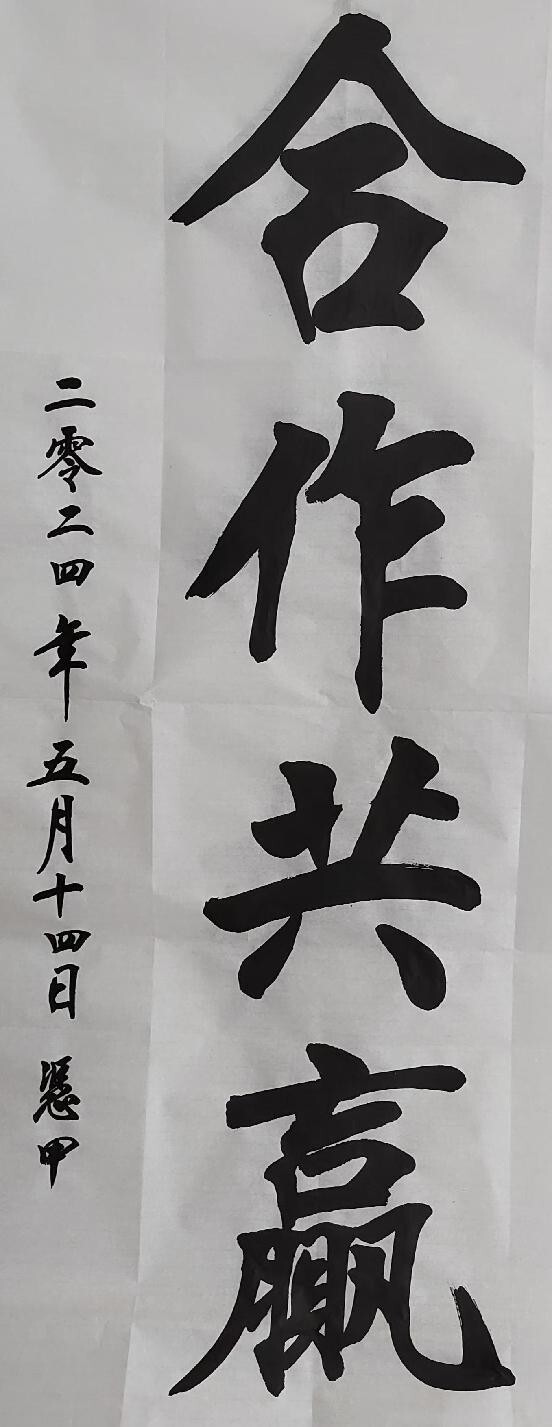 合作共赢
二零二四年五月十四日 憑甲